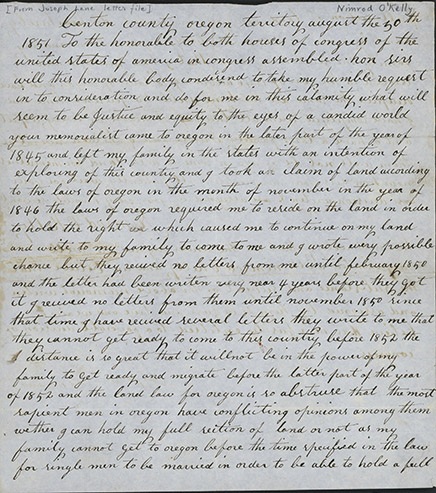 [From Joseph Lane letter file] Nimrod O'Kelly
Benton county, oregon territory august the 30th
1851. To the honorable to both houses of congress of the
united states of america in congress assembled. hon sirs
will this honorable body condisend to take my humble request
in to consideration and do for me in this calamity what will
seem to be Justice and equity to the eyes of a canded world
your memorialist came to oregon in the later part of the year of
1845 and left my family in the states with an intention of
exploring of this country and g took an claim of land acording
to the laws of oregon in the month of november in the year of
1846 the laws of oregon required me to reside on the land in order
to hold the right which caused me to continue on my land
and wrote to my family to come to me and g wrote every possible
chance but they recived no letters from me until february 1850
and the letter had been writen very near 4 years before they got
it g recived no letters from them until november 1850 since
that time g have recived several letters they write to me that
they cannot get ready to come to this country before 1852 the
distance is so great that it will not be in the power of my
family to Get ready and migrate before the latter part of the year
of 1852 and the land law for oregon is so abstruse that the most
sapient men in oregon have conflicting opinions among them
wether g can hold my full section of land or not as my
family cannot get to oregon before the time specified in the law
for single men to be married in order to be able to hold a full